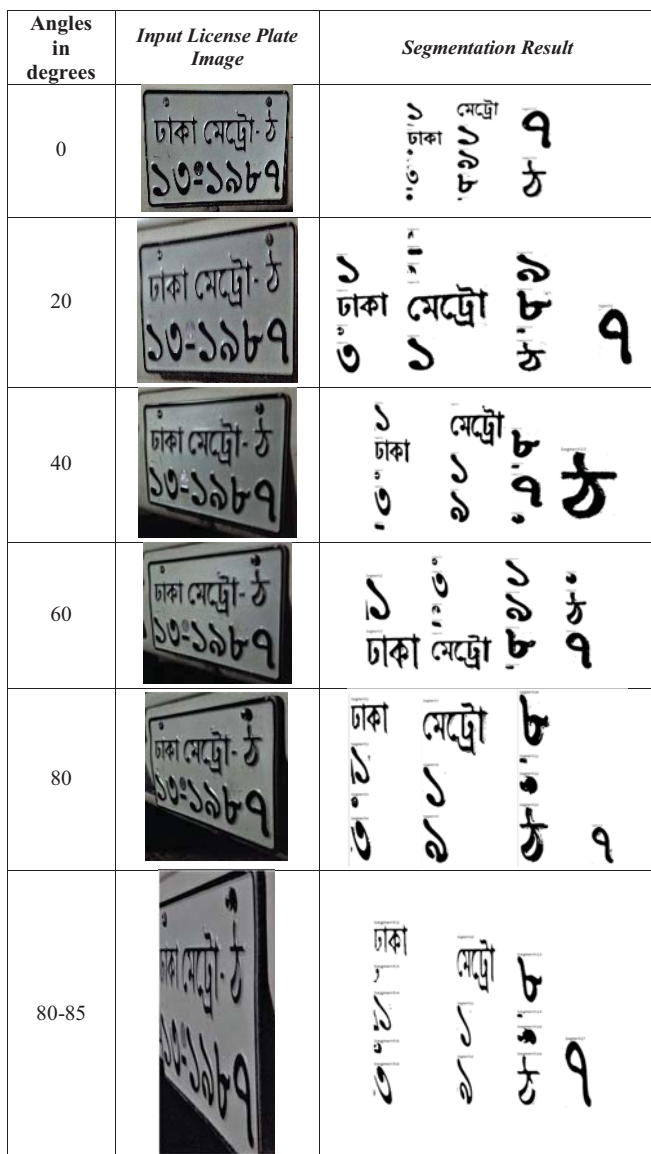 Angles
in
degrees
Input License Plate
Image
Segmentation Result
0
ঢাকা মেট্রো- ঠ
১৩-১৯৮৭
১ মেট্রো ৭
ঢাকা ১
৯
৩ ৮ ঠ
20
ঢাকা মেট্রো- ঠ
১৩-১৯৮৭
১ ৯
ঢাকা মেট্রো ৮
৩ ১ ঠ ৭
40
ঢাকা মেট্রো- ঠ
১৩-১৯৮৭
১ মেট্রো
ঢাকা ৮
১ ৭ ঠ
৩ ৯
60
ঢাকা মেট্রো- ঠ
১৩-১৯৮৭
১ ৩ ১
৯ ঠ
ঢাকা মেট্রো ৮ ৭
80
ঢাকা মেট্রো- ঠ
১৩-১৯৮৭
ঢাকা মেট্রো ৮
১ ১
৩ ৯ ঠ ৭
80-85
ঢাকা মেট্রো- ঠ
১৩-১৯৮৭
ঢাকা মেট্রো ৮
১ ১
৩ ৯ ঠ ৭